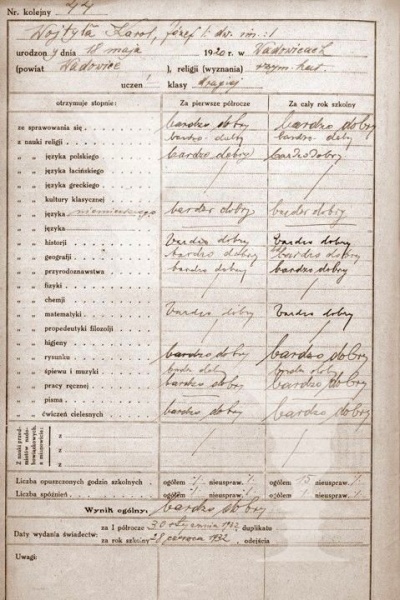 Nr. kolejny 44
Wojtyła Karol, Józef
urodzony dnia 18 maja 1920 r. w Wadowicach
(powiat Wadowice ), religii (wyznania) rzym. kat.
uczeń klasy drugiej
otrzymuje stopnie: Za pierwsze półrocze Za cały rok szkolny
za sprawowania się bardzo dobry bardzo dobry
z nauki religii bardzo dobry bardzo dobry
„ „ języka polskiego bardzo dobry bardzo dobry
„ „ języka łacińskiego
„ „ języka greckiego
„ „ kultury klasycznej
„ „ języka niemieckiego bardzo dobry bardzo dobry
„ „ języka
„ „ historji bardzo dobry bardzo dobry
„ „ geografji bardzo dobry bardzo dobry
„ „ przyrodoznawstwa bardzo dobry bardzo dobry
„ „ fizyki
„ „ chemji
„ „ matematyki bardzo dobry bardzo dobry
„ „ propedeutyki filozofji
„ „ higjeny
„ „ rysunku bardzo dobry bardzo dobry
„ „ śpiewu i muzyki bardzo dobry bardzo dobry
„ „ pracy ręcznej bardzo dobry bardzo dobry
„ „ pisma
„ „ ćwiczeń cielesnych bardzo dobry bardzo dobry
Z nauki przedmiotów nadobowiązkowych a mianowicie:
z
z
z
Liczba opuszczonych godzin szkolnych ogółem nieuspraw. ogółem 15 nieuspraw.
Liczba spóźnień ogółem nieuspraw. ogółem nieuspraw.
Wynik ogólny: bardzo dobry
Daty wydania świadectw: za I półrocze 30 stycznia 1932 duplikatu
za rok szkolny 18 czerwca 1932, odejścia
Uwagi: